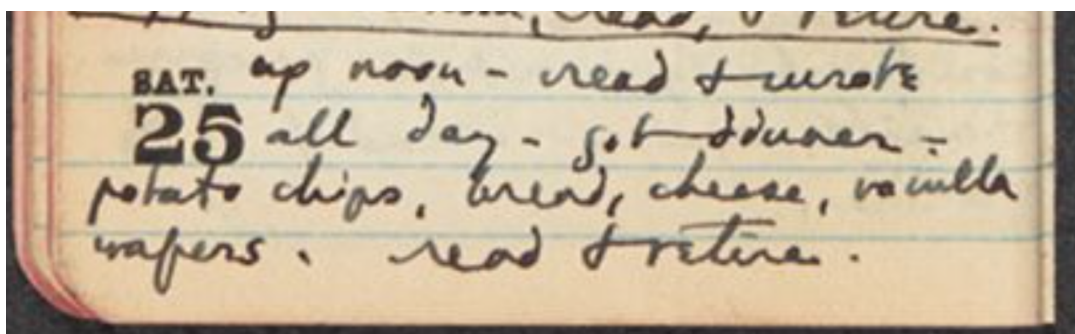 read, & retire.
SAT. up noon - read & wrote
25 all day - got dinner -
potato chips, bread, cheese, vanilla
wafers. read & retire.